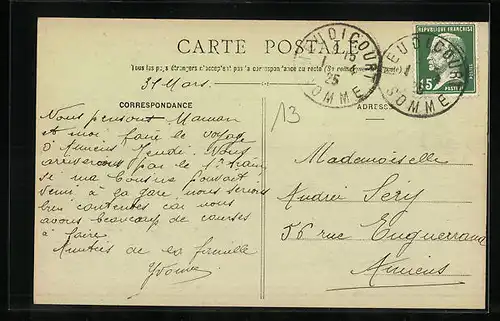 CARTE POSTALE
Tous les pays étrangers n'acceptent pas la correspondance au recto
31 Mars.
CORRESPONDANCE
ADRESSE
13
HEUDICOURT
SOMME
25
HEUDICOURT
SOMME
REPUBLIQUE FRANÇAISE
15
POSTES
Nous pensons Maman
et moi faire le voyage
d'Amiens Jeudi. Nous
arriverons par le 1er train
si ma cousine pouvait
venir à la gare nous serions
bien contentes car nous
avons beaucoup de courses
à faire
Amitiés de la famille
Yvonne
Mademoiselle
Andrée Séry
56 rue Enguerrand
Amiens